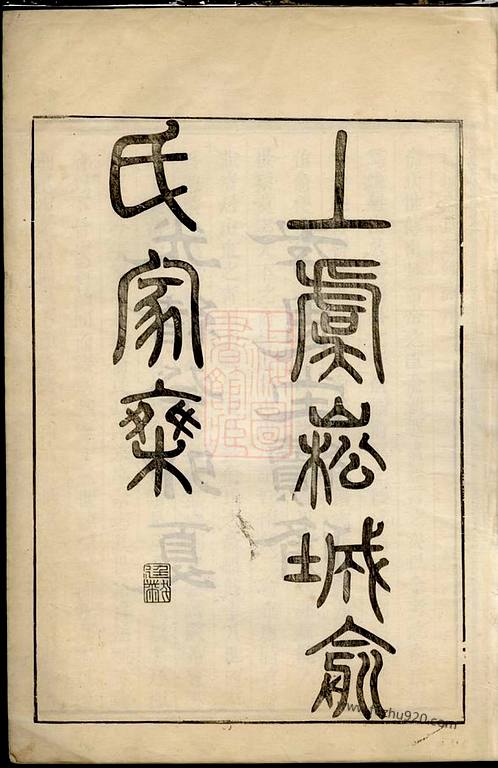 上虞崧城俞
氏家乘